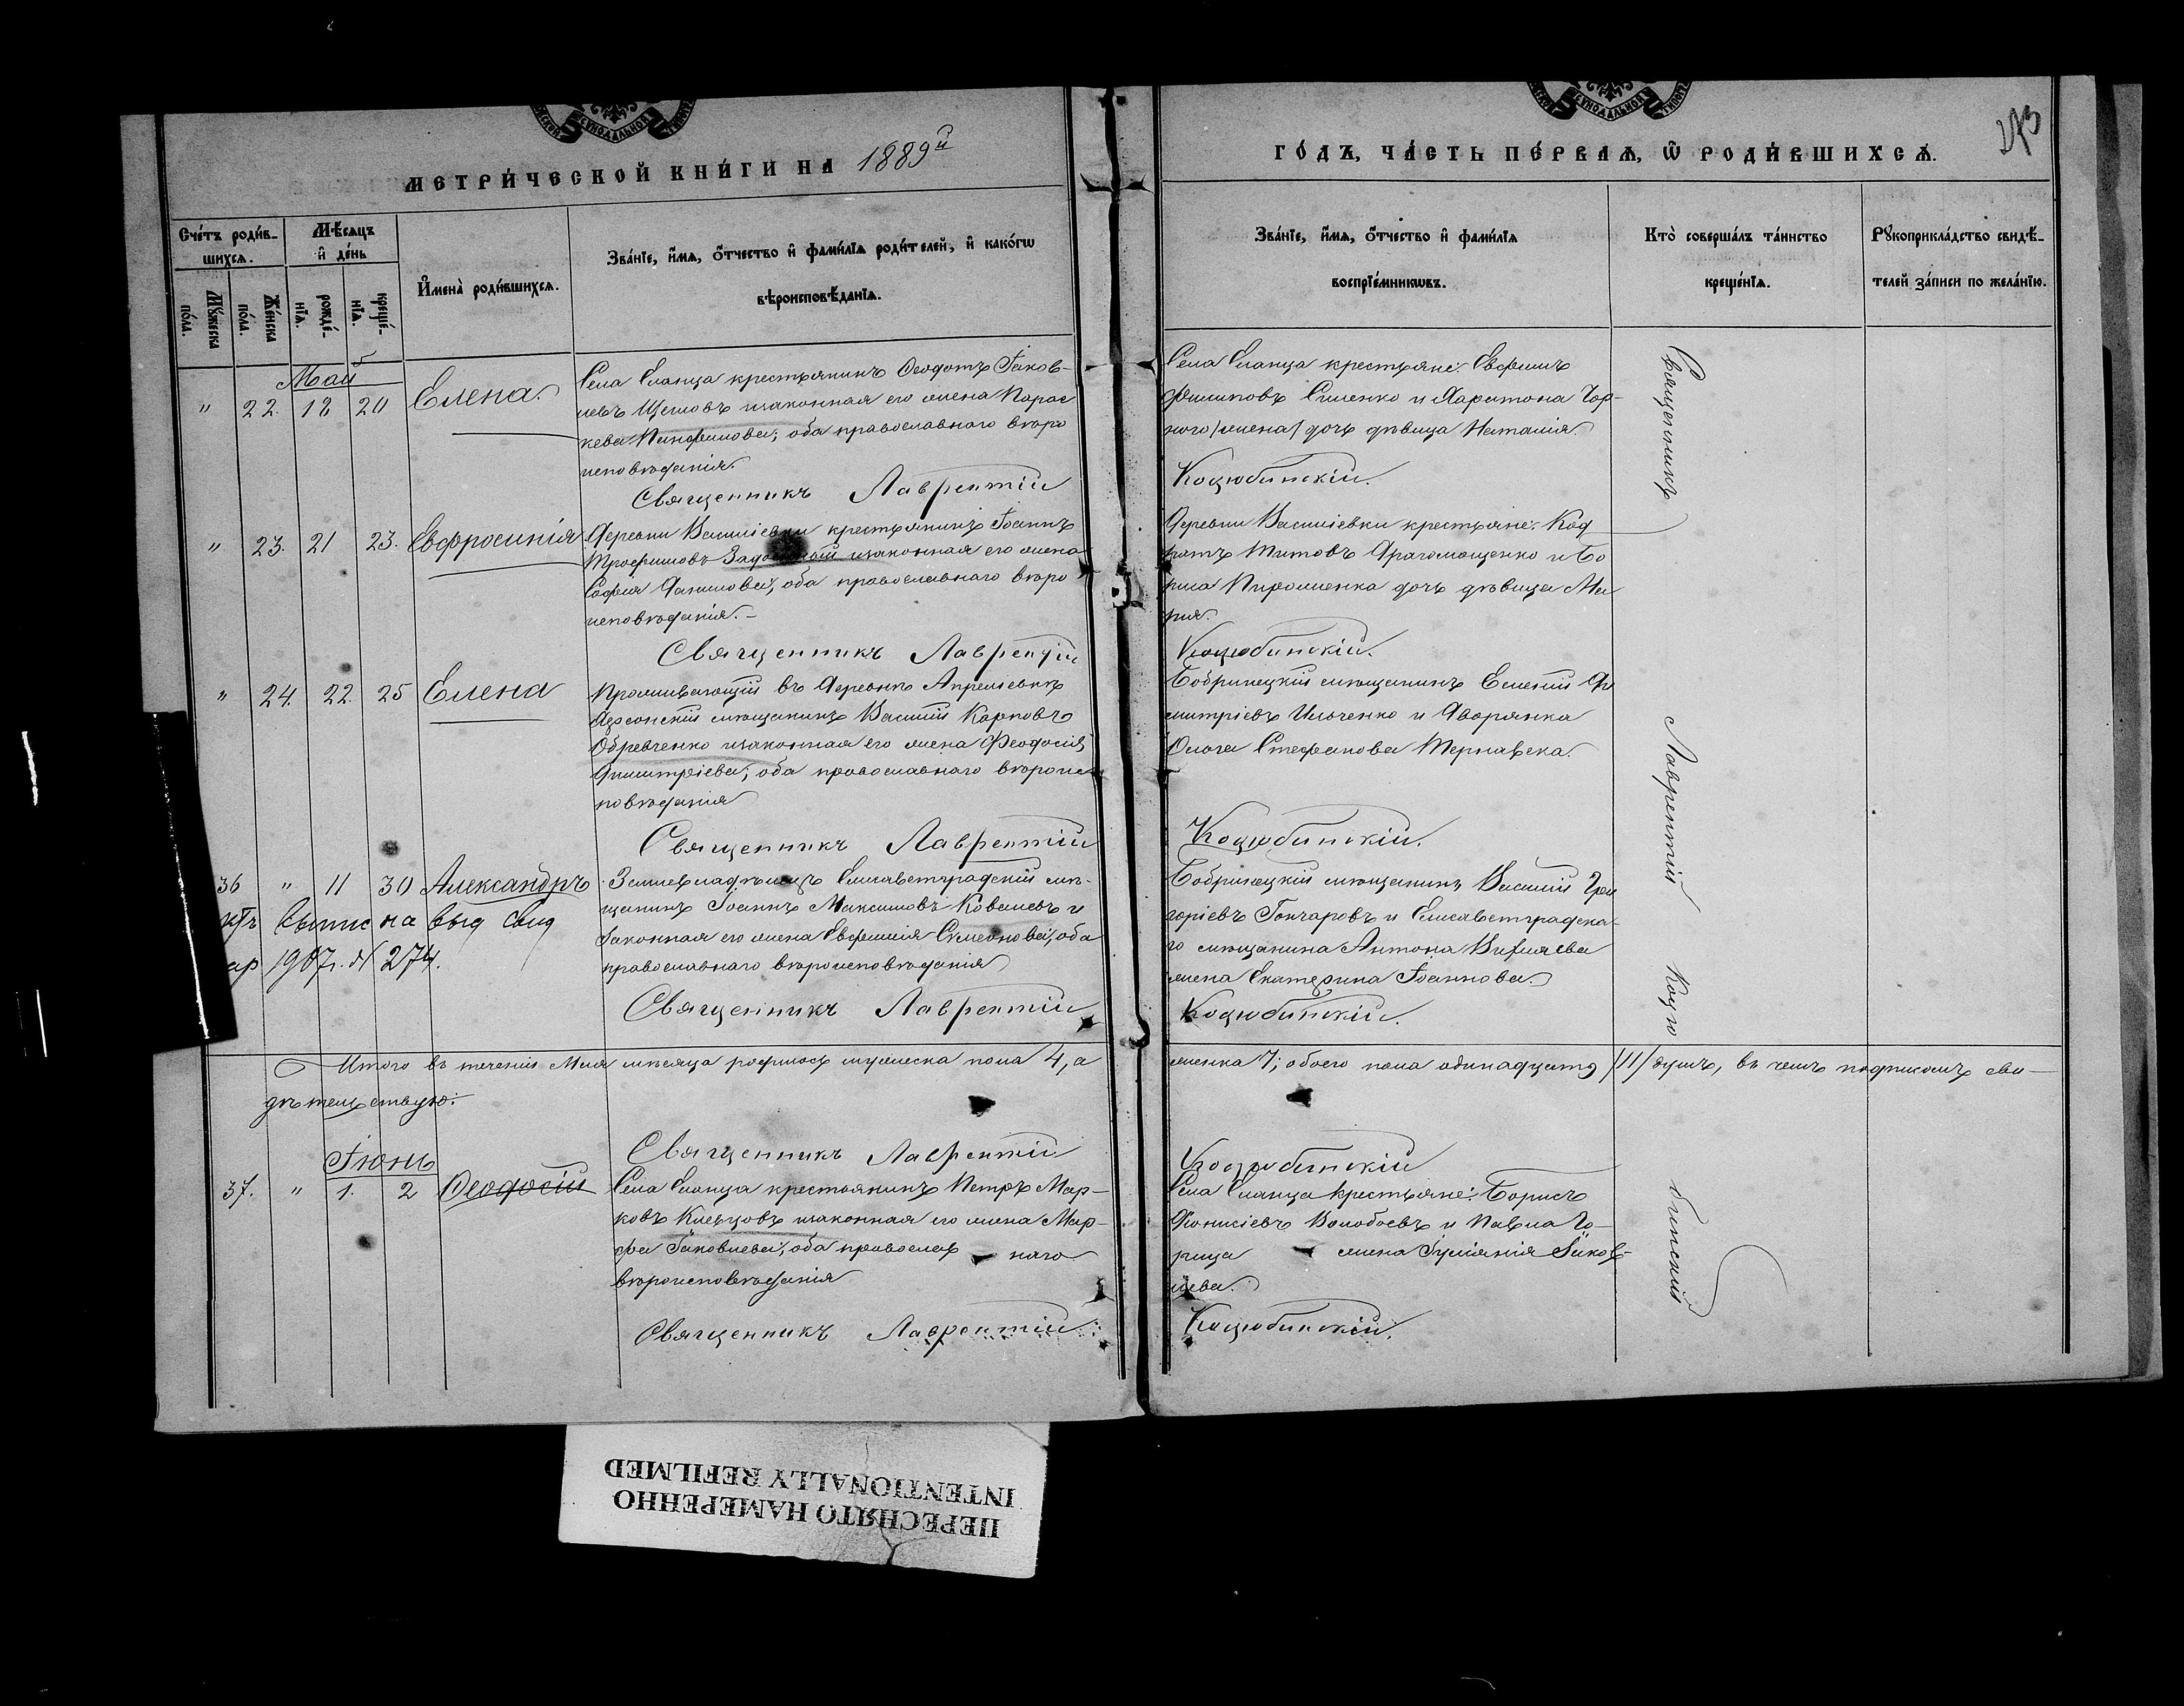 МЕТРИ́ЧЕСКОЙ КНИ́ГИ НА 1889й
ГО́ДЪ, ЧА́СТЬ ПЕ́РВАѦ, Ѿ РОДИ́ВШИХСѦ.
273
Сче́тъ роди́в-
шихсѧ.
Мѣ́сѧцъ
и҆ де́нь
И҆мена̀ роди́вшихсѧ.
Зва́нїе, и҆́мѧ, о҆́тчество и҆ фами́лїѧ роди́телей, и҆ како́гѡ
вѣроисповѣ́данїѧ.
Зва́нїе, и҆́мѧ, о҆́тчество и҆ фами́лїѧ
воспрїе́мникѡвъ.
Кто̀ соверша́лъ та́инство
креще́нїѧ.
Рꙋкоприкла́дство свидѣ́-
телей за́писи по жела́нїю.
Мꙋ́жеска
по́ла.
Же́нска
по́ла.
рожде́-
нїѧ.
креще́-
нїѧ.
Май
" 22. 18 20 Елена.
Села Еланца крестьянинъ Ѳеодотъ Іаков-
левъ изаконная его жена Парас
кева Панфилова; оба православнаго вѣро
исповѣданія.
Священникъ Лаврентій
Села Еланца крестьяне: Евфимъ
Филиповъ и Харитона Чор-
ного /жена/ дочь дѣвица Наталія.
Коцюбинскій.
" 23. 21 23. Евфросинія
Деревни Василіевки крестьянинъ Іоаннъ
Трофимовъ изаконная его жена
Софія Данилова, оба православнаго вѣро
исповѣданія.-
Священникъ Лаврентій
Деревни Василіевки крестьяне: Код
ратъ Титовъ Драгомощенко и Бо
риса дочь дѣвица Ма
рія.
Коцюбинскій.
" 24. 22. 25 Елена
Проживающій въ Деревнѣ Апрелевкѣ
Херсонскій мѣщанинъ Василій Карповъ
изаконная его жена Феодосія
Димитріева; оба православнаго вѣроис
повѣданія
Священникъ Лаврентій
Бобринецкій мѣщанинъ Ди
митріевъ Ильченко и Дворянка
Ольга Стефанова
Коцюбинскій.
36 " 11 30 Александръ
Землевладѣлецъ Елисаветградскій мѣ-
щанинъ Іоаннъ Максимовъ Ковалевъ и
законная его жена Евфимія Симеонова, оба
православнаго вѣроисповѣданія
Священникъ Лаврентій
Бобринецкій мѣщанинъ Василій Гри
горіевъ Гончаровъ и Елисаветградска-
го мѣщанина Антона
жена Екатерина Іоаннова.
Коцюбинскій.
выпис на выд свид
1907г. № 274.
Итого въ теченіи Мая мѣсяца родилось мужеска пола 4, а
женска 7; обоего пола одинадцать /11/ душъ, въ чемъ подписомъ сви-
дѣтельствую:
Священникъ Лаврентій
Коцюбинскій
Іюнь
37. " 1. 2 Ѳеодосій
Села Еланца крестьянинъ Петръ Мар-
ковъ изаконная его жена Мар-
фа Іаковлева, оба православ наго
вѣроисповѣданія
Священникъ Лаврентій
Села Еланца крестьяне: Борисъ
Діонисіевъ и Павла Го-
рица жена Іуліянія Іаков-
лева.
Коцюбинскій.
Священникъ
Лаврентій
Коцю
бинскій
ПЕРЕСНЯТО НАМЕРЕННО
INTENTIONALLY REFILMED